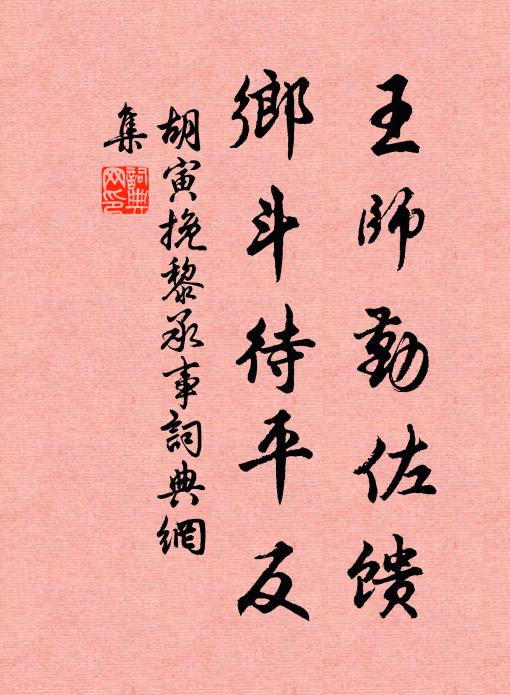 王師勤佐饋
鄉斗待平反
胡寅挽黎承事詞典網
集
詞典
网印